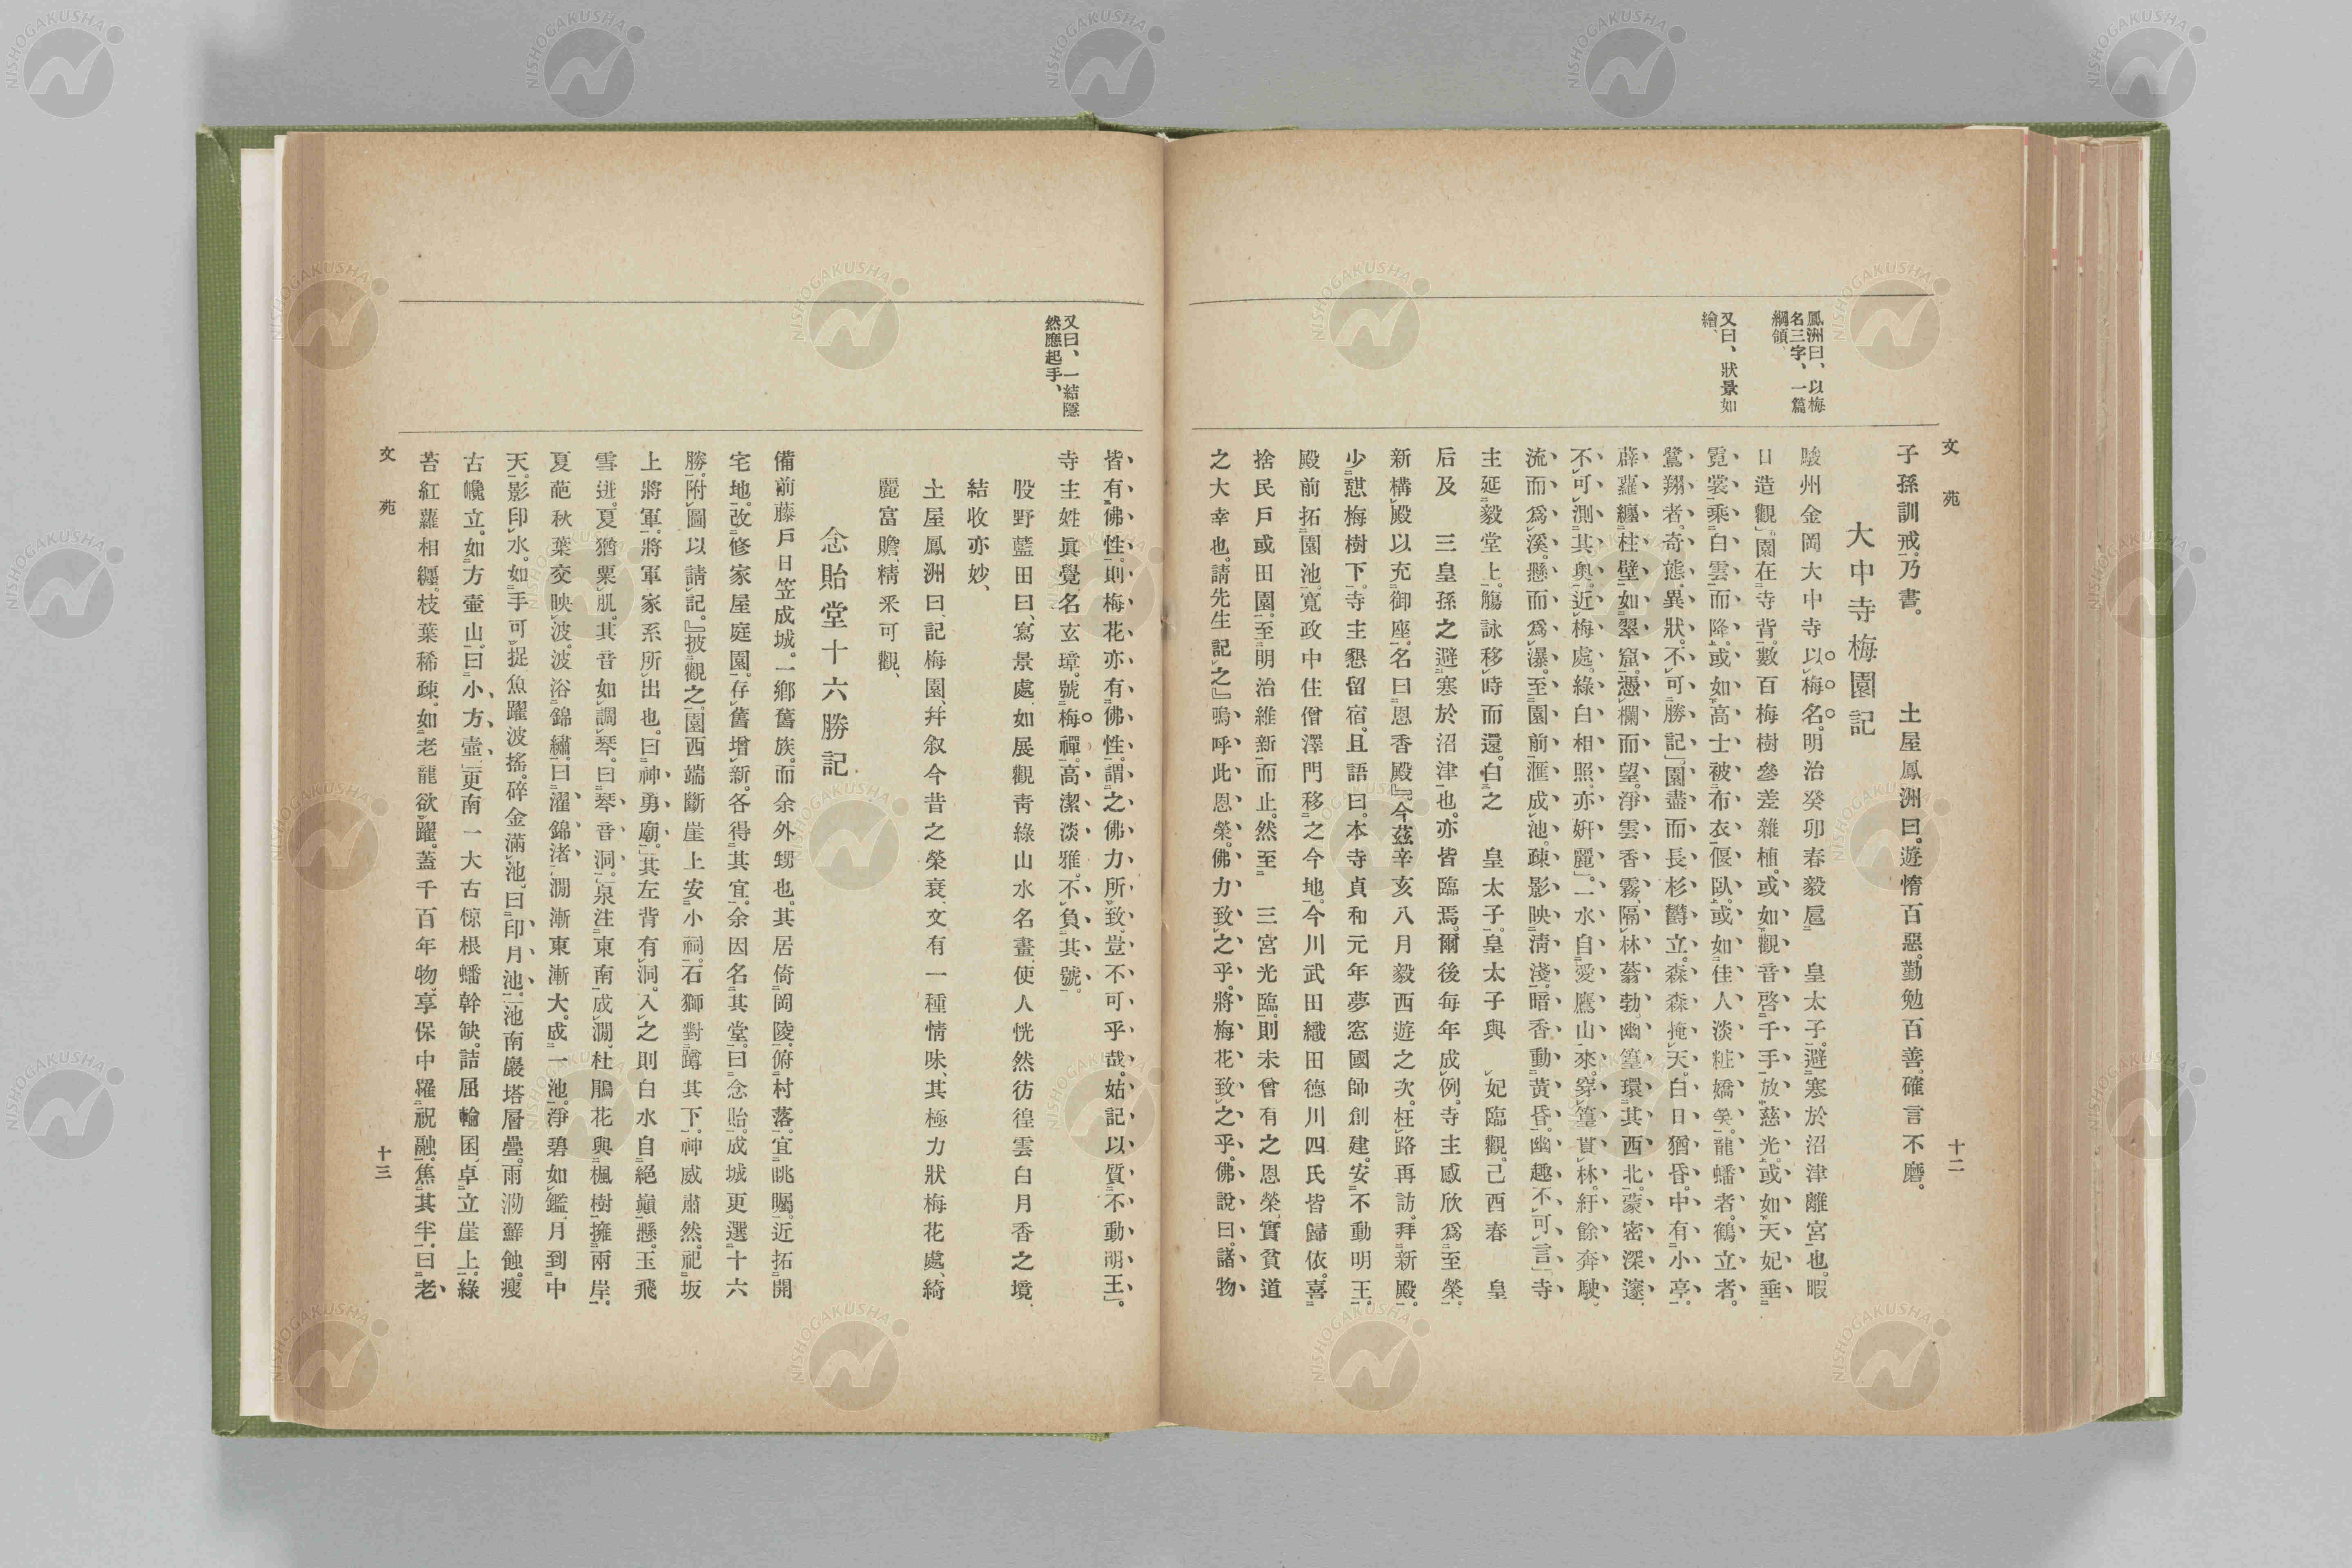 文苑
十二
鳳洲曰、以梅
名三字、一篇
綱領、
又曰、狀景如
繪、
子孫訓戒。乃書。 土屋鳳洲曰。遊惰百惡。勤勉百善。確言不磨。
大中寺梅園記
駿州金岡大中寺以梅名。明治癸卯春毅扈 皇太子。避寒於沼津離宮也。暇
日造觀。園在寺背。數百梅樹參差雜植。或如觀音啓千手放慈光。或如天妃垂
霓裳乘白雲而降。或如高士被布衣偃臥。或如佳人淡粧嬌笑。龍蟠者。鶴立者。
鷺翔者。奇態異狀。不可勝記。園盡而長杉欝立。森森掩天。白日猶昏。中有小亭。
薜蘿纏柱。壁如翠窟。憑欄而望。淨雲香霧。隔林蓊勃。幽篁環其西北。蒙密深邃、
不可測其奥。近梅處。綠白相照。亦妍麗。一水自愛鷹山來。穿篁貫林。紆餘奔駛、
流而爲溪。懸而爲瀑。至園前滙成池。疎影映淸淺。暗香動黃昏。幽趣不可言。寺
主延毅堂上。觴詠移時而還。白之 皇太子。皇太子與 妃臨觀。己酉春 皇
后及 三皇孫之避寒於沼津也。亦皆臨焉。爾後每年成例。寺主感欣爲至榮。
新構殿以充御座。名曰恩香殿。』今茲辛亥八月毅西遊之次。枉路再訪。拜新殿。
少憇梅樹下。寺主懇留宿。且語曰。本寺貞和元年夢窓國師創建。安不動明王。
殿前拓園池。寬政中住僧澤門移之今地。今川武田織田德川四氏皆歸依。喜
捨民戶或田園。至明治維新而止。然至 三宮光臨。則未曾有之恩榮。實貧道
之大幸也。請先生記之』嗚呼此恩榮。佛力致之乎。將梅花致之乎。佛說曰。諸物
又曰、一結隱
然應起手、
皆有佛性。則梅花亦有佛性。謂之佛力所致。豈不可乎哉。姑記以質不動明王。
寺主姓眞覺。名玄璋。號梅禪。高潔淡雅。不負其號。
股野藍田曰、寫景處、如展觀靑綠山水名畫、使人恍然彷徨雲白月香之境、
結收亦妙、
土屋鳳洲曰、記梅園、幷叙今昔之榮衰、文有一種情味、其極力狀梅花處、綺
麗富贍、精采可觀、
念貽堂十六勝記
備前藤戶日笠成城。一鄉舊族。而余外甥也。其居倚岡陵。俯村落。宜眺矚。近拓開
宅地。改修家屋庭園。存舊增新。各得其宜。余因名其堂。曰念貽。成城更選十六
勝。附圖以請記。』披觀之。園西端斷崖上安小祠。石獅對蹲其下。神威肅然。祀坂
上將軍。將軍家系所出也。曰神勇廟。其左背有洞。入之則白水自絕巓懸。玉飛
雪迸。夏猶粟肌。其音如調琴。曰琴音洞。泉注東南成澗。杜鵑花與楓樹擁兩岸。
夏葩秋葉交映波。波浴錦繡。曰濯錦渚。澗漸東漸大。成一池。淨碧如鑑。月到中
天。影印水。如手可捉。魚躍波搖。碎金滿池。曰印月池。池南巖塔層疊。雨泐蘚蝕。瘦
古巉立。如方壷山。曰小方壷。更南一大古椋根蟠幹缺。詰屈輪囷、卓立崖上。綠
苔紅蘿相纒。枝葉稀疎。如老龍欲躍。蓋千百年物。享保中罹祝融。焦其半。曰老
文苑
十三